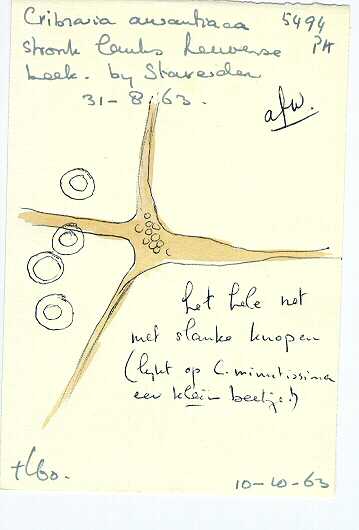 Cribraria aurantiaca 5494
stronk langs Leuvense PH
beek. by Staverden
31-8-63.
afw.
het hele net
met slanke knopen
(lijkt op C. minutissima
een klein beetje!)
10-10-63